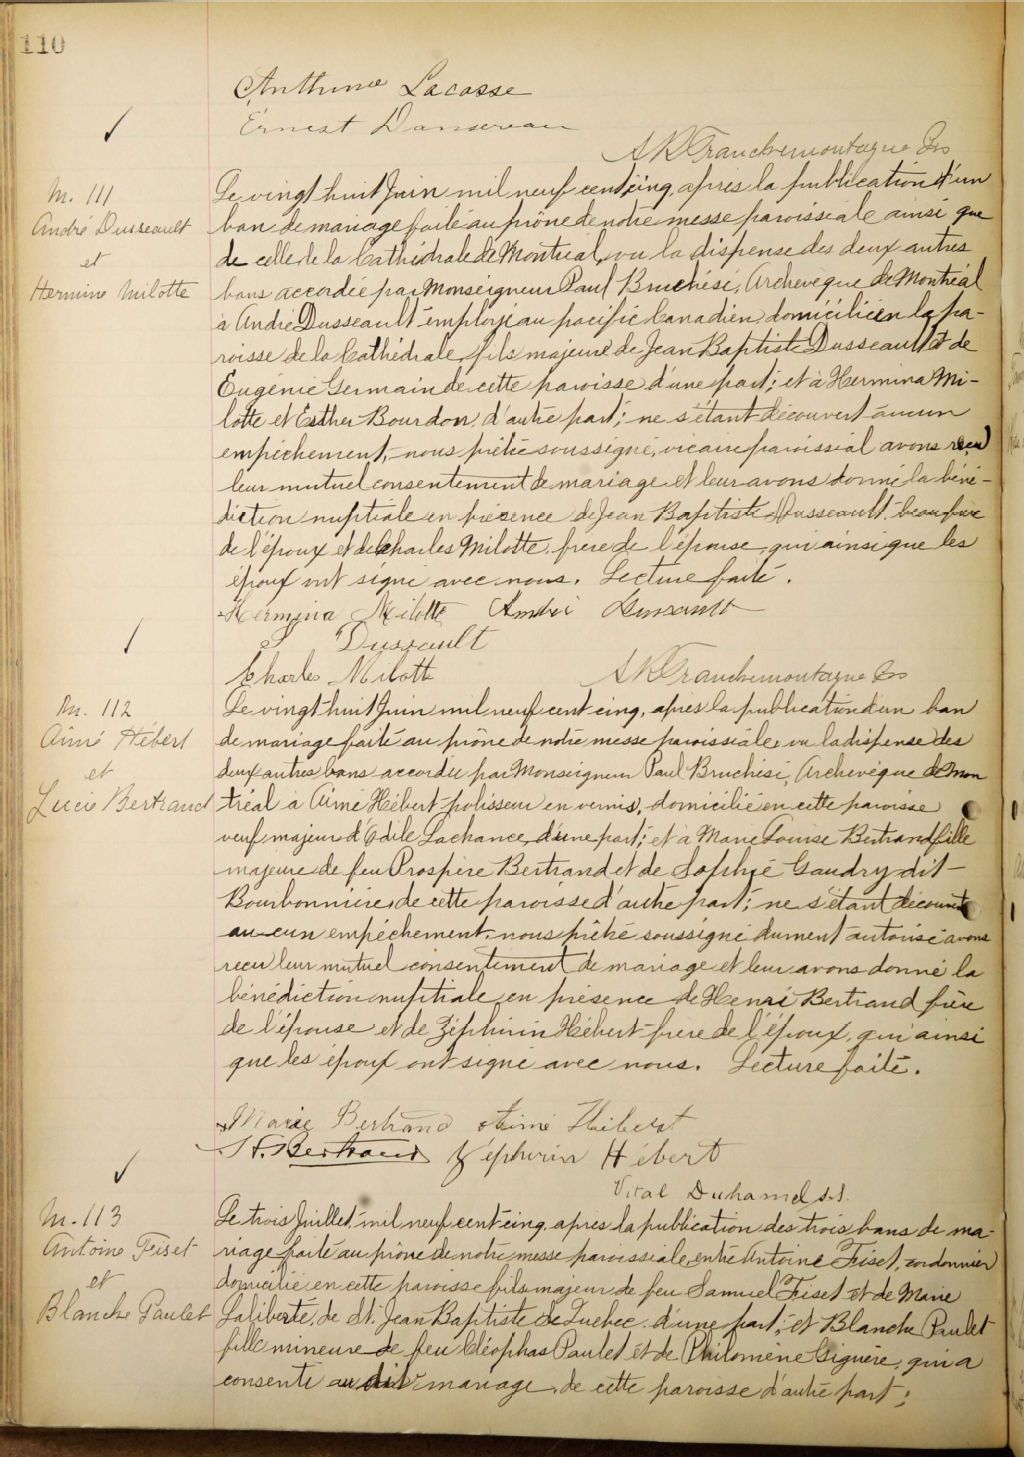 110
Anthime Lacasse
Ernest Dansereau
A R Franchemontagne
M. 111
André Dusseault
et
Hermine Milotte
Le vingt huit Juin mil neuf cent cinq, après la publication d'un
ban de mariage faite au prône de notre messe paroissiale ainsi que
de celle de la Cathédrale de Montréal, vu la dispense des deux autres
bans accordée par Monseigneur Paul Bruchési, Archevêque de Montréal
à André Dusseault employé au pacific Canadien, domicilié en la pa-
roisse de la Cathédrale, fils majeur de Jean Baptiste Dusseault et de
Eugénie Germain de cette paroisse d'une part; et à Hermina Mi-
lotte et Esther Bourdon, d'autre part; ne s'étant découvert aucun
empêchement, nous prêtre soussigné, vicaire paroissial avons reçu
leur mutuel consentement de mariage et leur avons donné la béné-
diction nuptiale en présence de Jean Baptiste Dusseault, beau frère
de l'époux et de Charles Milotte, frère de l'épouse, qui ainsi que les
époux ont signé avec nous. Lecture faite.
Hermina Milotte André Dussault
Dussault
Charles Milott
A R Franchemontagne
M. 112
Aimé Hébert
et
Lucie Bertrand
Le vingt-huit Juin mil neuf cent cinq, après la publication d'un ban
de mariage faite au prône de notre messe paroissiale, vu la dispense des
deux autres bans accordée par Monseigneur Paul Bruchési, Archevêque de Mon
tréal à Aimé Hébert polisseur en vernis, domicilié en cette paroisse
veuf majeur d'Odile Lachance, d'une part; et à Marie Louise Bertrand fille
majeure de feu Prospère Bertrand et de Sophie Gaudry dit
Bourbonnière, de cette paroisse d'autre part; ne s'étant découvert
aucun empêchement, nous prêtre soussigné dument autorisé avons
recu leur mutuel consentement de mariage et leur avons donné la
bénédiction nuptiale en présence de Henri Bertrand frère
de l'épouse et de Zéphirin Hébert frère de l'époux, qui ainsi
que les époux ont signé avec nous. Lecture faite.
Marie Bertrand Aimé Hébert
H. Bertrand Zéphirin Hébert
Vital Duhamel s.s.
M. 113
Antoine Fiset
et
Blanche Paulet
Le trois Juillet, mil neuf cent cinq, après la publication des trois bans de ma-
riage faite au prône de notre messe paroissiale entre Antoine Fiset, cordonnier
domicilié en cette paroisse fils majeur de feu Samuel Fiset et de Marie
Laliberté, de St. Jean Baptiste de Quebec, d'une part; et Blanche Paulet
fille mineure de feu Cléophas Paulet et de Philomène Giguère, qui a
consenti au dit mariage, de cette paroisse d'autre part;